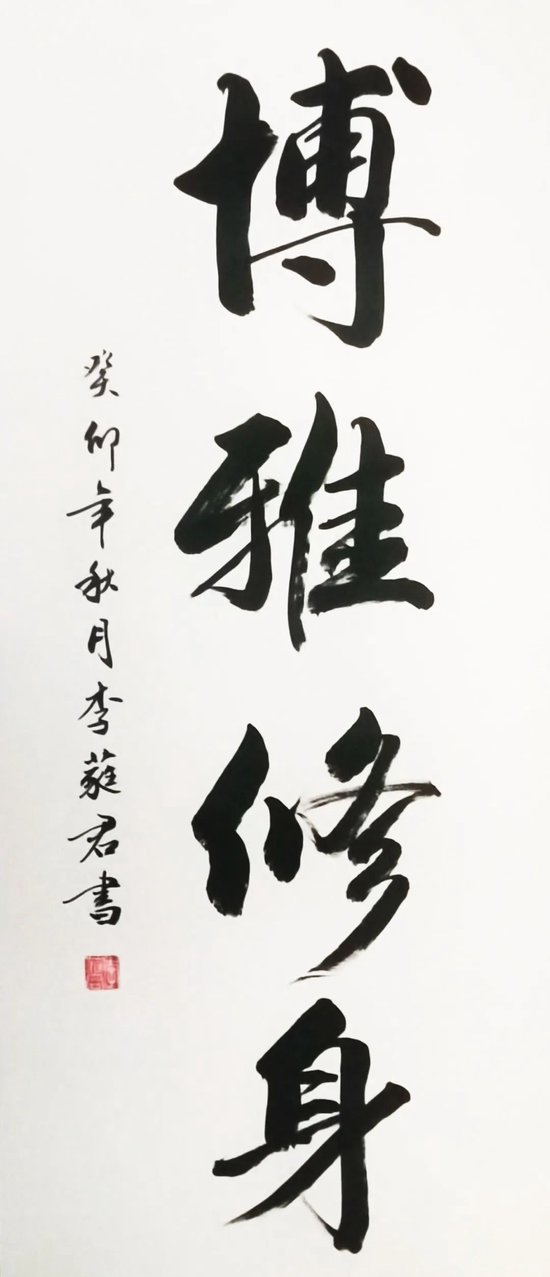 博雅修身
癸卯年秋月李蕤君书